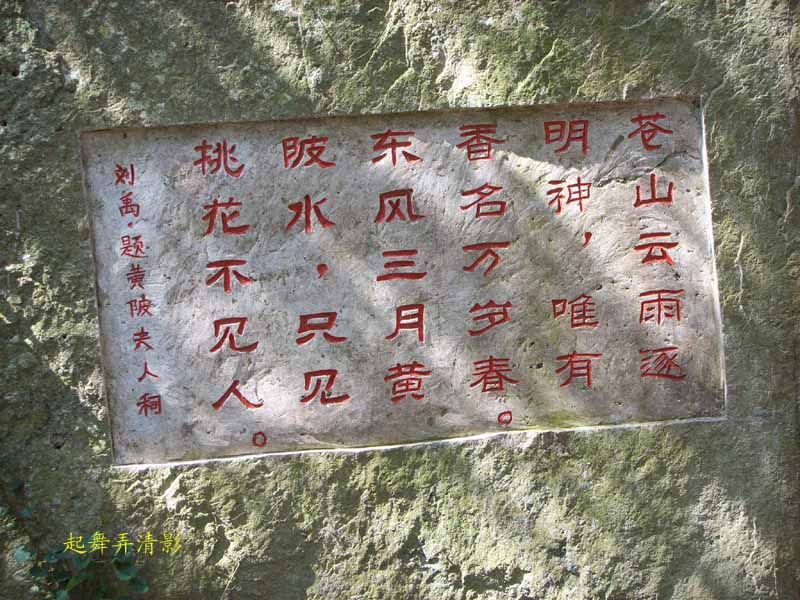 苍山云雨逐
明神，唯有
香名万岁春。
东风三月黄
陂水，只见
桃花不见人。
刘禹·题黄陂夫人祠
起舞弄清影